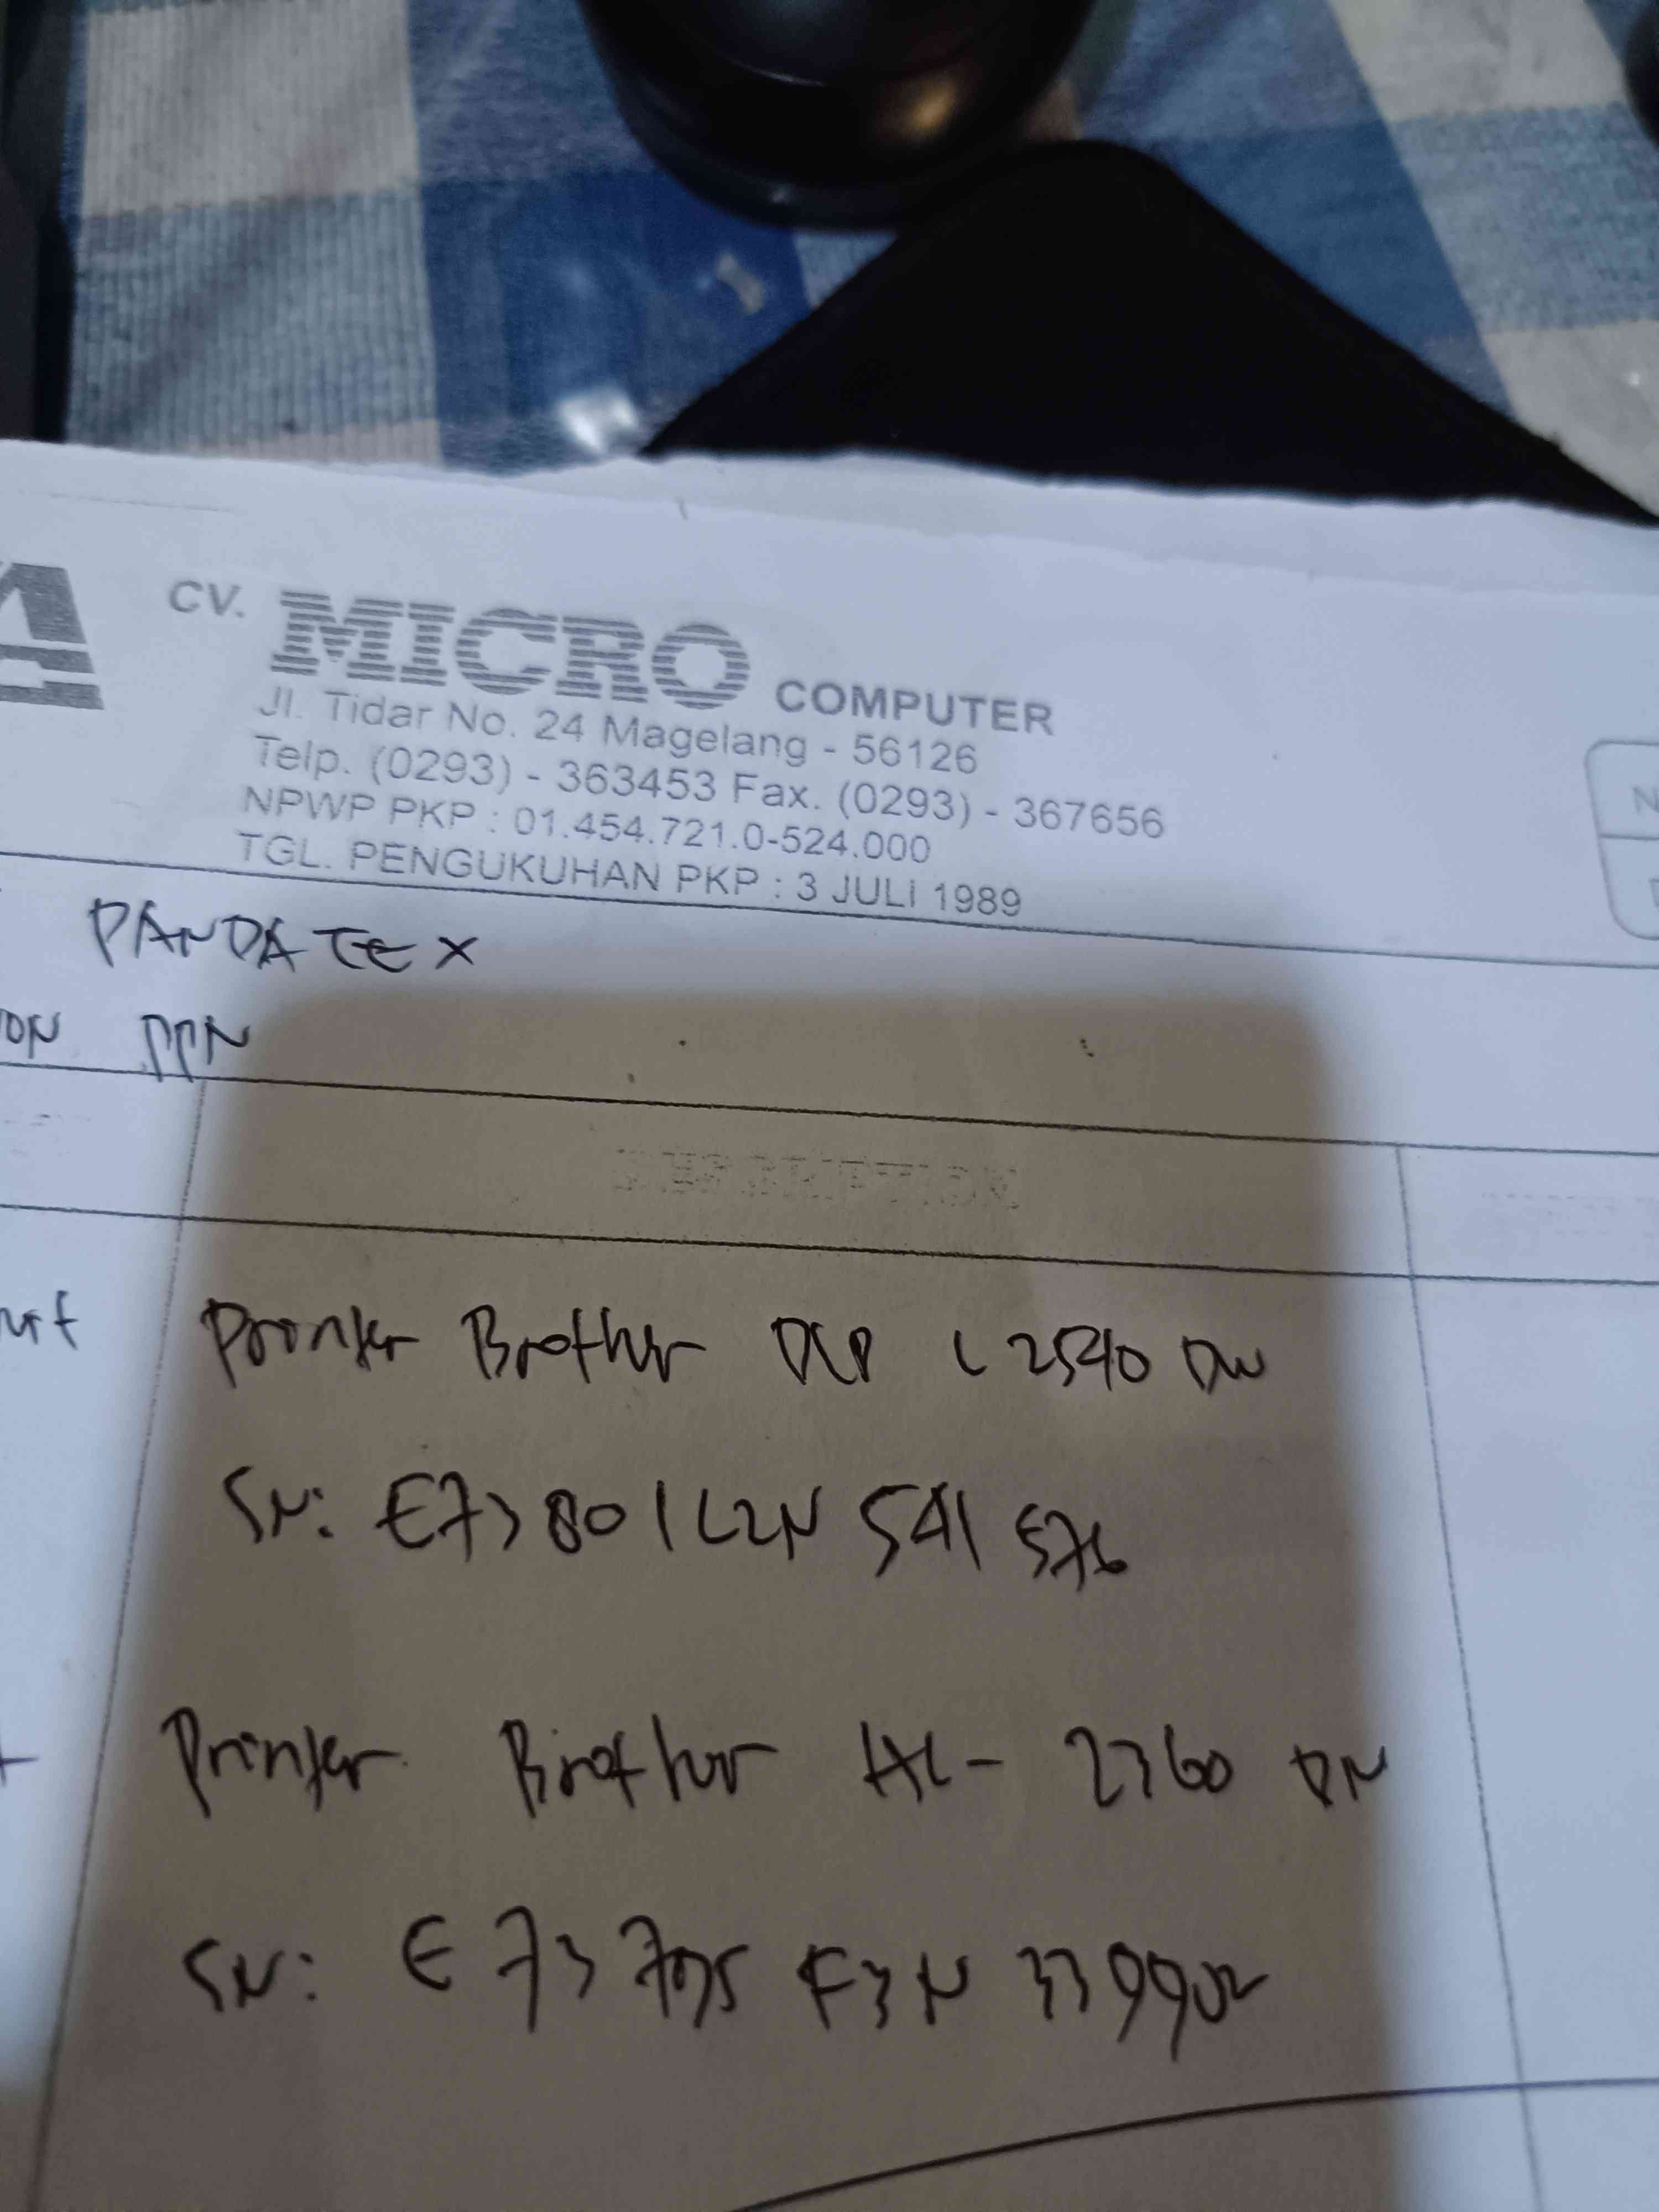 A
CV. MICRO COMPUTER
Jl. Tidar No. 24 Magelang - 56126
Telp. (0293) - 363453 Fax. (0293) - 367656
NPWP PKP : 01.454.721.0-524.000
TGL. PENGUKUHAN PKP : 3 JULI 1989
PANDATEX
PPN
DESCRIPTION
Prointer Brother DCP L2540 DW
SN: E73801L2N541576
Printer Brother HL- 2360 DN
SN: E73795F3N339902